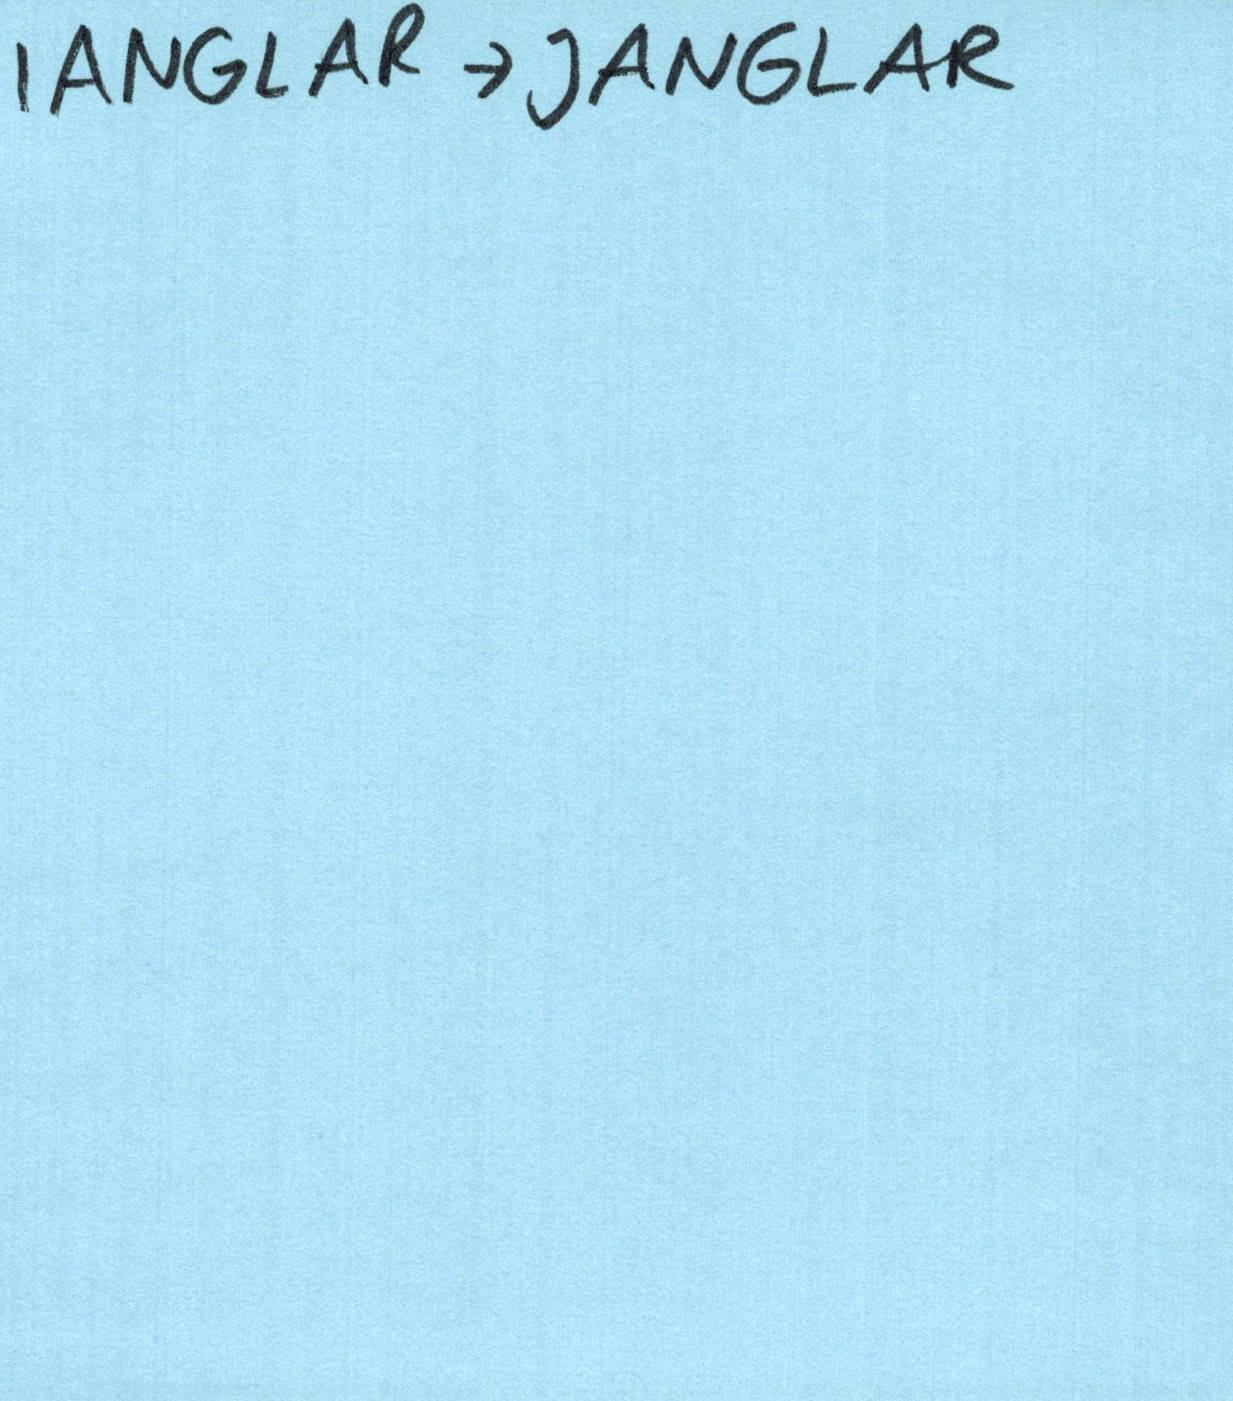 IANGLAR → JANGLAR